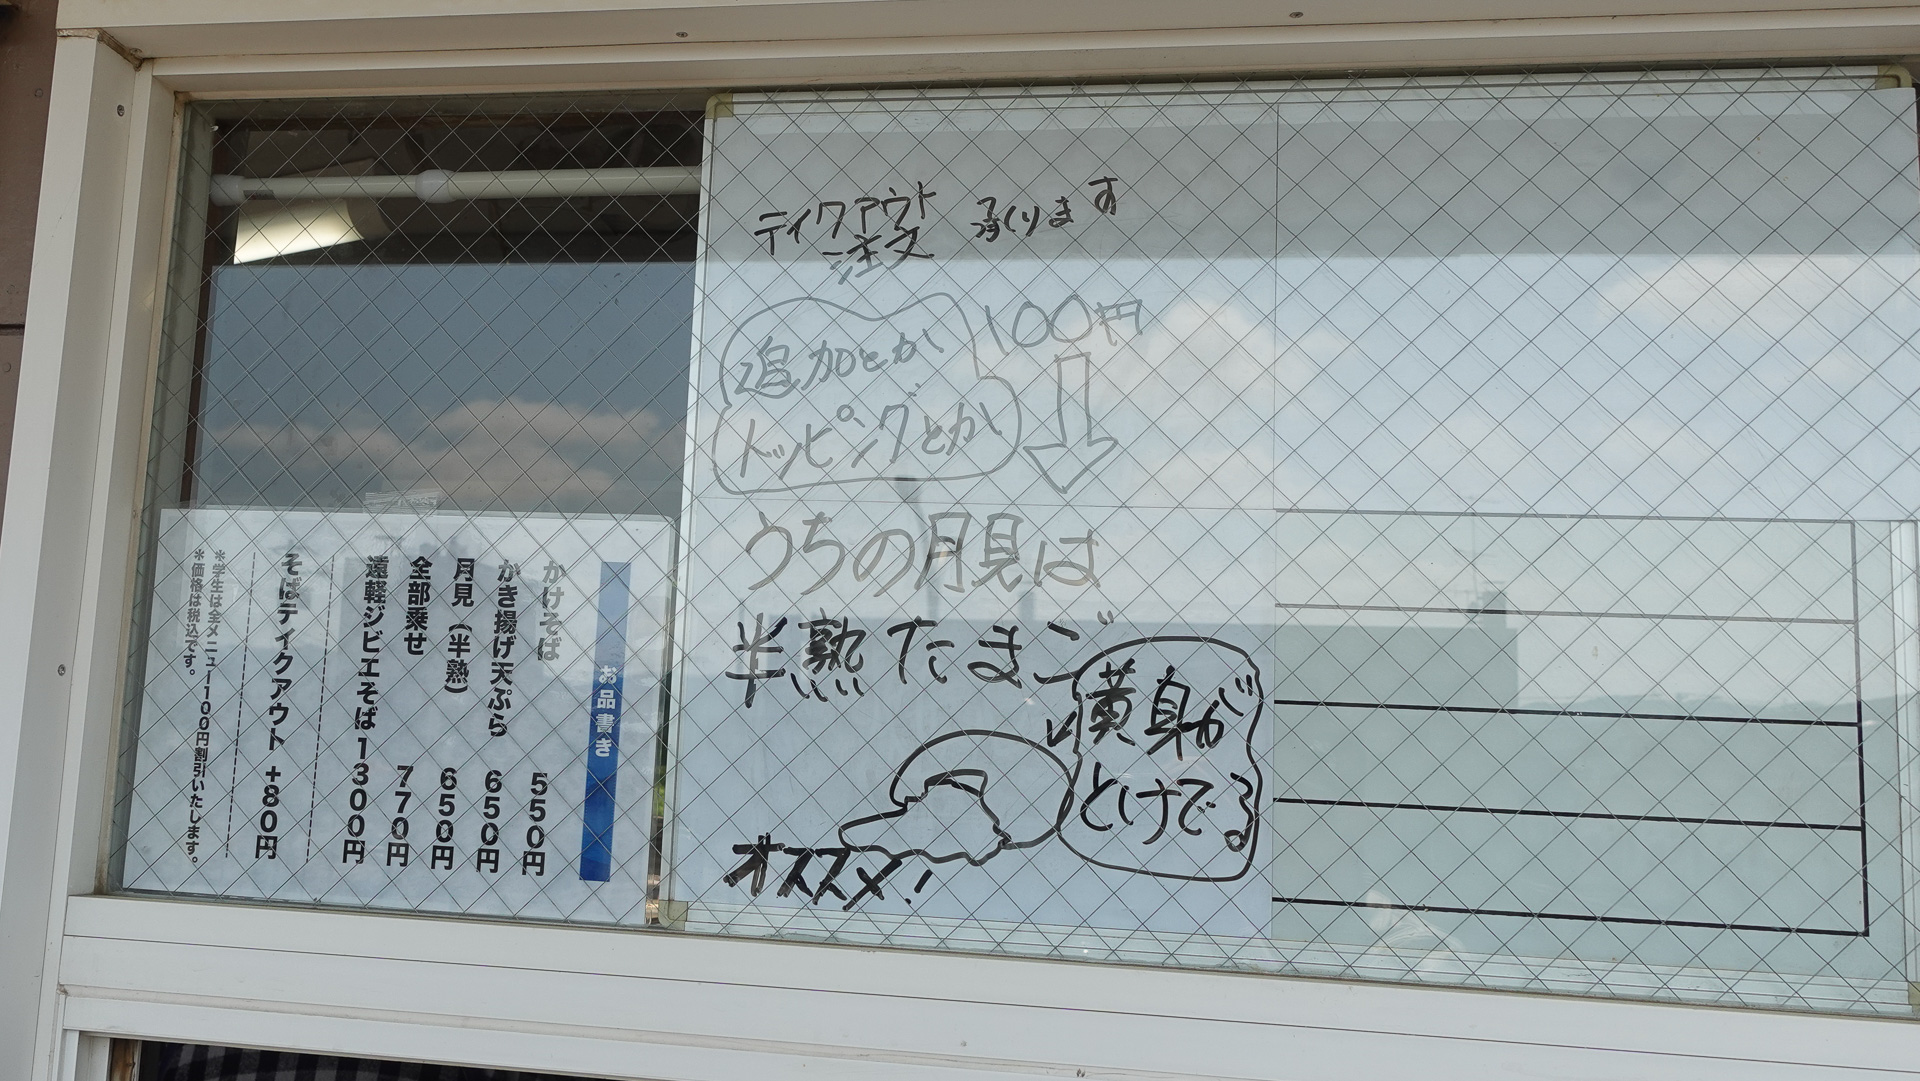 お品書き
かけそば 550円
かき揚げ天ぷら 650円
月見（半熟） 650円
全部乗せ 770円
遠軽ジビエそば 1300円
そばテイクアウト +80円
＊学生は全メニュー100円割引いたします。
＊価格は税込です。
テイクアウト
注文 承ります
追加とか
トッピングとか
100円
うちの月見は
半熟たまご
黄身が
とけでる
オススメ!